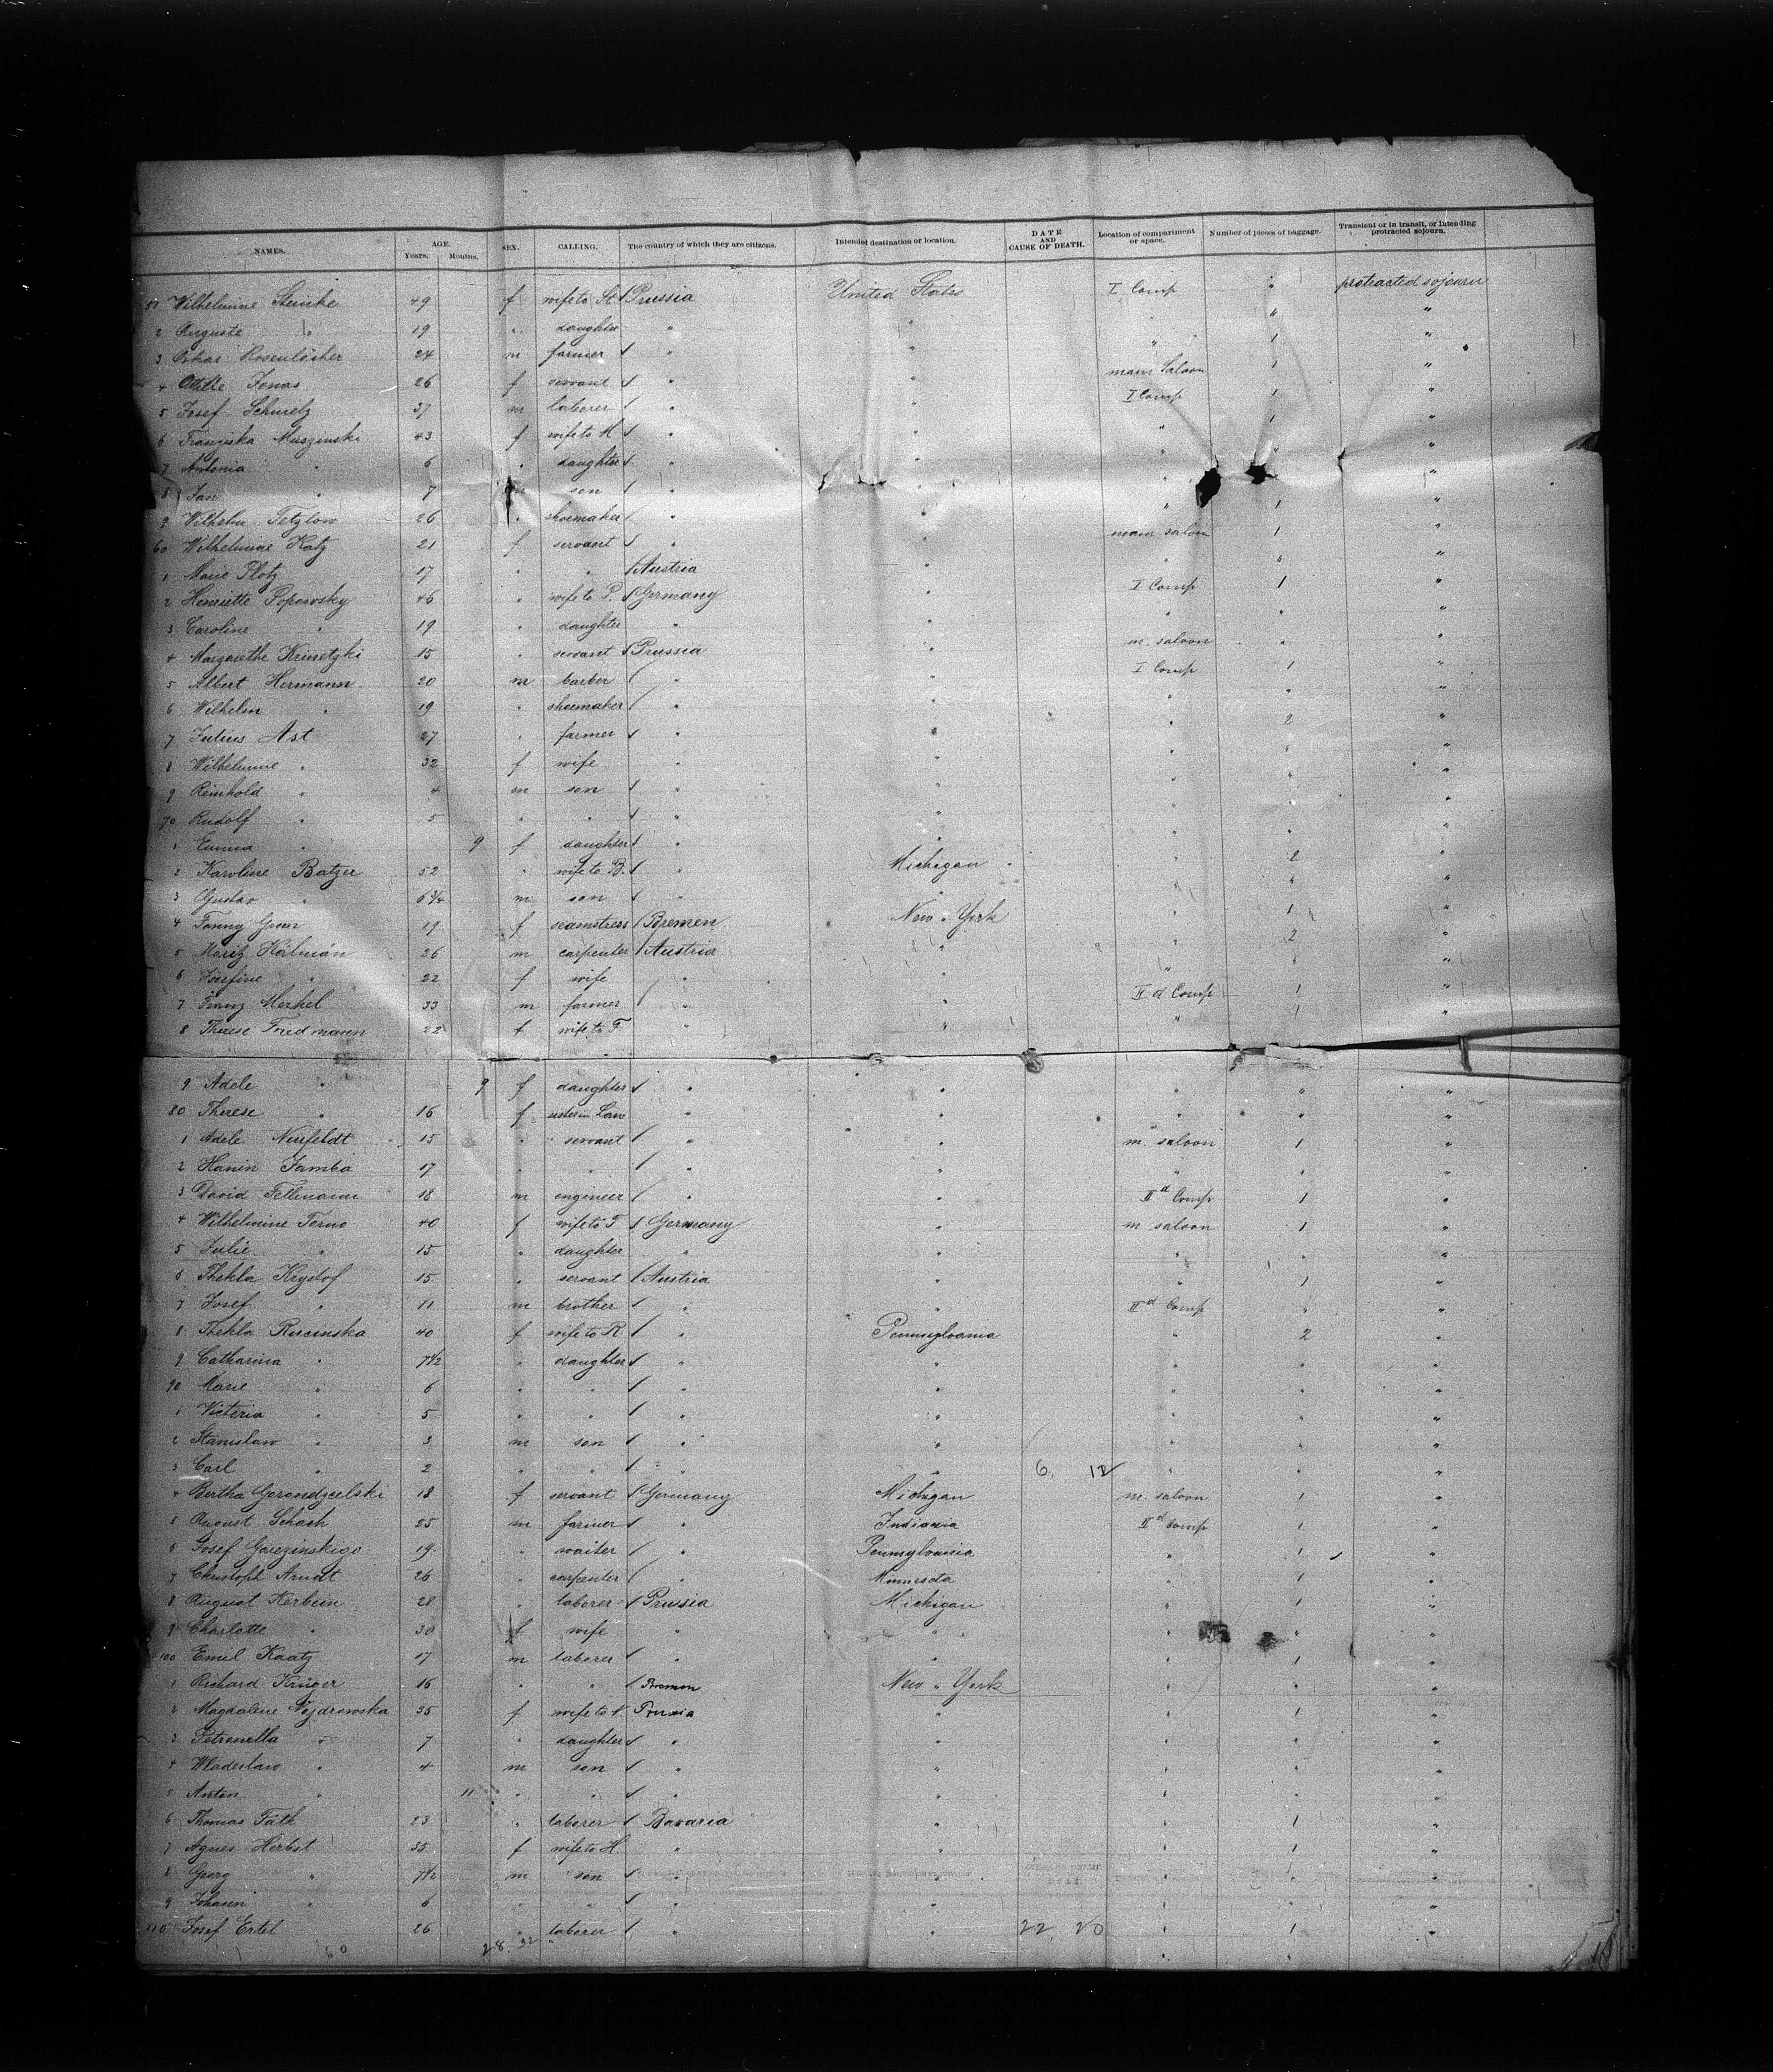 NAMES. AGE. Years. Months. SEX. CALLING. The country of which they are citizens. Intended destination or location. DATE AND CAUSE OF DEATH. Location of compartment or space. Number of pieces of baggage. Transient or in transit, or intending protracted sojourn.
51 Wilhelmine Steinke 49 f wife to St Prussia United States I Comp " protracted sojourn
2 Auguste " 19 " daughter " " " " "
3 Oskar Rosenlöcher 24 m farmer " " " 1 "
4 Ottilie Jonas 26 f servant " " main Saloon 1 "
5 Josef Schmelz 37 m laborer " " I Comp 1 "
6 Franziska Muszinski 43 f wife to M " " " 1 "
7 Antonia " 6 " daughter " " " " "
8 Jan " 7 son " " "
9 Wilhelm Tetzlow 26 " shoemaker " " " 1 "
60 Wilhelmine Katz 21 f servant " " main saloon 1 "
1 Marie Plotz 17 " " Austria " " " "
2 Henriette Poperosky 46 " wife to P. Germany " I Comp 1 "
3 Caroline " 19 " daughter " " " " "
4 Margarethe Krinetzki 15 " servant Prussia " m. saloon " "
5 Albert Hermann 20 m barber " " I Comp 1 "
6 Wilhelm " 19 " shoemaker " " " " "
7 Julius Ast 27 " farmer " " " 2 "
8 Wilhelmine " 32 f wife " " " " "
9 Reinhold " 4 m son " " " " "
70 Rudolf " 5 " " " " " " "
1 Emma " 9 f daughter " " " " "
2 Karoline Batzer 52 " wife to B. " Michigan " 2 "
3 Gustav " 6 3/4 m son " " " " "
4 Fanny 19 f seamstress Bremen New " York " 1 "
5 Moritz Kálmán 26 m carpenter Austria " " 2 "
6 Josefine " 22 f wife " " " " "
7 Franz Merkel 33 m farmer " " II d Comp 1 "
8 Therese Friedmann 22 f wife to F " " " 1 "
9 Adele " 9 f daughter " " " " "
80 Therese " 16 f sister in Law " " " " "
1 Adele Neufeldt 15 " servant " " m. saloon 1 "
2 Hanin Jamba 17 " " " " " " "
3 David Fellmann 18 m engineer " " II d Comp 1 "
4 Wilhelmine Terno 40 f wife to T Germany " m saloon 1 "
5 Julie " 15 " daughter " " " " "
6 Thekla Krystof 15 " servant Austria " " 1 "
7 Josef " 11 m brother " " II d Comp " "
8 Thekla Rucinska 40 f wife to R " Pennsylvania " 2 "
9 Catharina " 7 1/2 " daughter " " " " "
90 Marie " 6 " " " " " " "
1 Victoria " 5 " " " " " " "
2 Stanislaw " 3 m son " " " " "
3 Carl " 2 " " " " 6. 12 " " "
4 Bertha Gorondzielski 18 f servant Germany Michigan m. saloon 1 "
5 August Schach 25 m farmer " Indiania II d Comp 1 "
6 Josef Gorezinskigo 19 " waiter " Pennsylvania " 1 "
7 Christoph Arndt 26 " carpenter " Minnesota " 1 "
8 August Kerbein 28 " laborer Prussia Michigan " 1 "
9 Charlotte " 30 f wife " " " " "
100 Emil Kaatz 17 m laborer " " " 1 "
1 Richard Krüger 16 " " Bremen New " York " " "
2 Magdalene Wojdrowska 35 f wife to Prussia " " 1 "
3 Petronella " 7 " daughter " " " " "
4 Wladeslaw " 4 m son " " " " "
5 Anton " 11 " " " " " " "
6 Thomas Fäth 23 " laborer Bavaria " " 1 "
7 Agnes Herbst 35 f wife to H " " " 1 "
8 Georg " 7 1/2 m son " " " " "
9 Johann " 6 " " " " " " "
110 Josef Ertel 26 " laborer " " 22. 20 " 1 "
60 28. 32